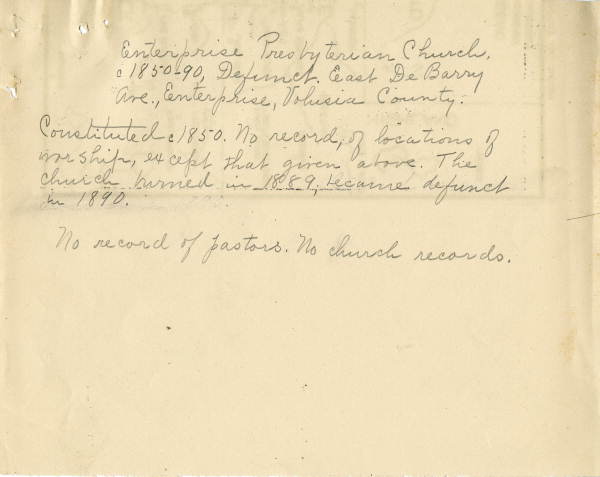 Enterprise Presbyterian Church,
c1850-90, Defunct. East De Barry
Ave., Enterprise, Volusia County.
Constituted c1850. No record, of locations of
worship, except that given above. The
church burned in 1889, became defunct
in 1890.
No record of pastors. No church records.